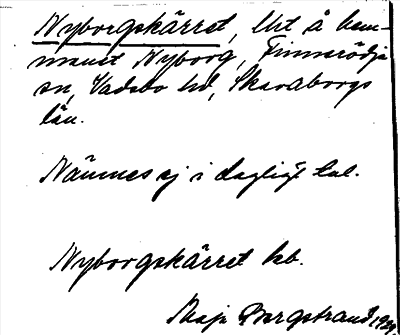 Nyborgskärret, Urt å hem-
manet Nyborg, Finnerödja
sn, Vadsbo hd, Skaraborgs
län.
Nämnes ej i dagligt tal.
Nyborgskärret kb.
Maja Bergstrand 1929.